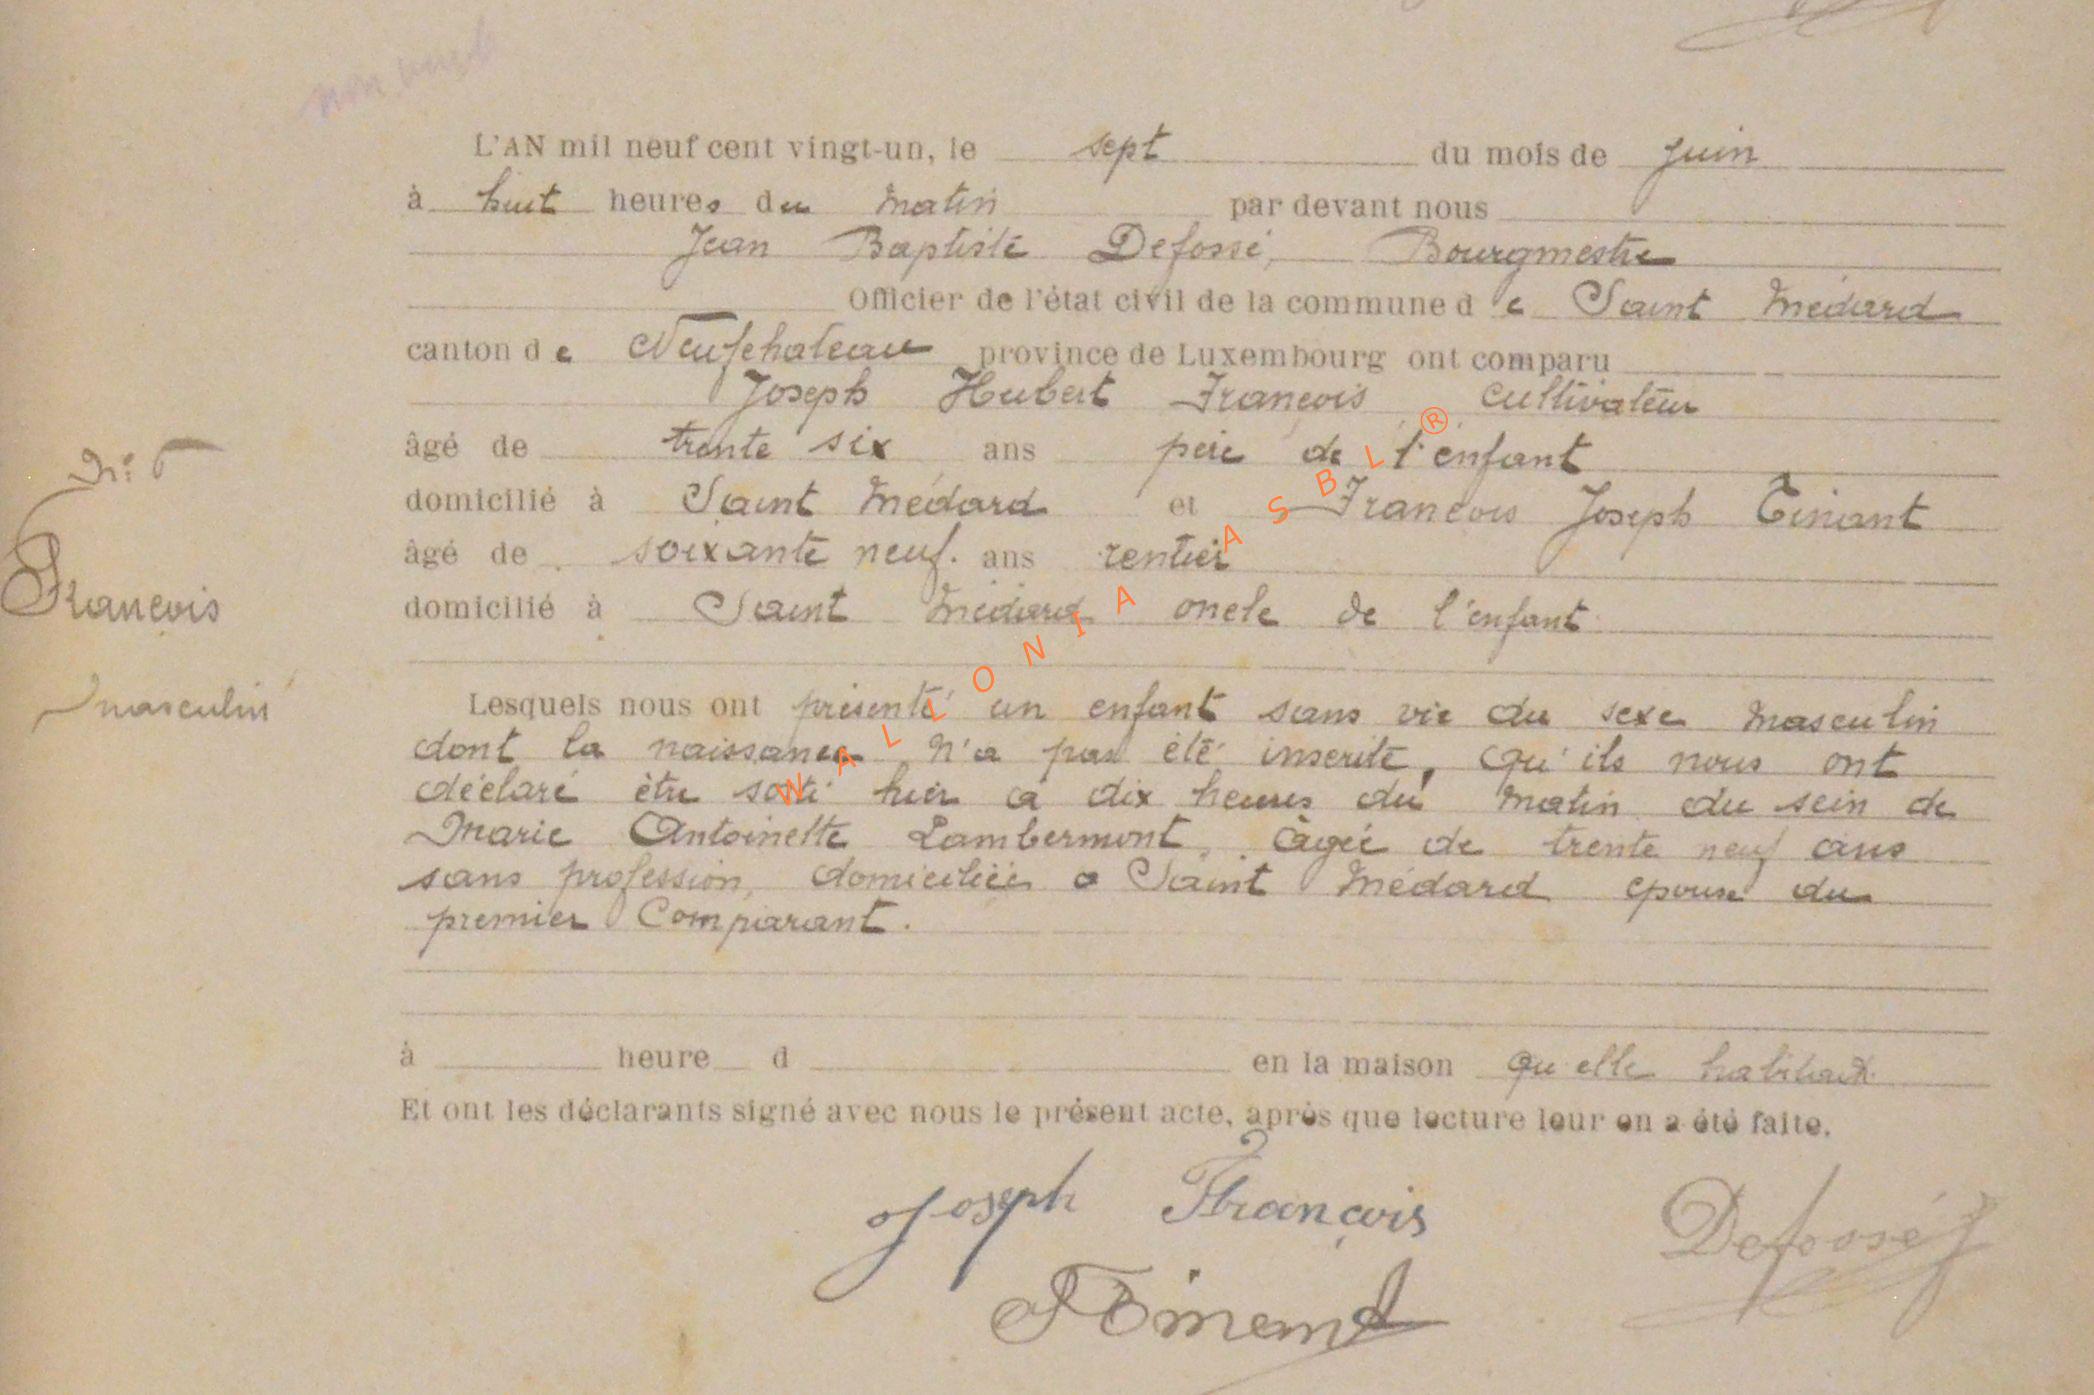 L'AN mil neuf cent vingt-un, le sept du mois de Juin
à huit heures du matin par devant nous
Jean Baptiste Defossé, Bourgmestre
Officier de l'état civil de la commune de Saint Médard
canton de Neufchateau province de Luxembourg ont comparu
Joseph Hubert François cultivateur
âgé de trente six ans père de l'enfant
domicilié à Saint Médard et François Joseph Tinant
âgé de soixante neuf. ans rentier
domicilié à Saint Médard oncle de l'enfant
Lesquels nous ont présenté un enfant sans vie du sexe masculin
dont la naissance n'a pas été inscrite, qu'ils nous ont
déclaré être sorti hier à dix heures du matin du sein de
Marie Antoinette Lambermont, âgée de trente neuf ans
sans profession, domiciliée à Saint Médard épouse du
premier Comparant.
à heure d en la maison qu'elle habitait.
Et ont les déclarants signé avec nous le présent acte, après que lecture leur en a été faite.
Joseph François
Defossé
F Tinant
N° 6
François
masculin
WALLONIA ASBL ®